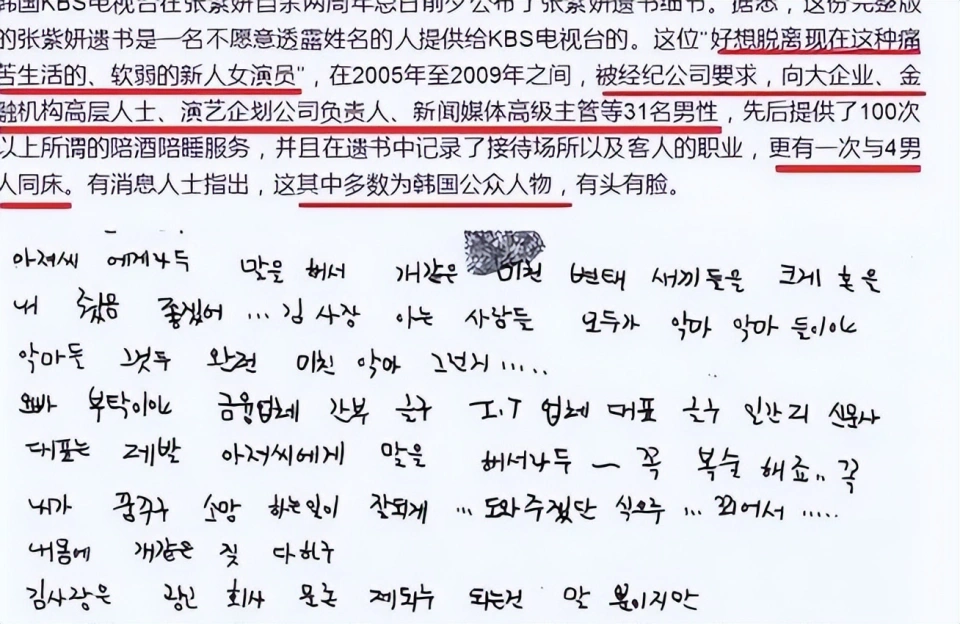 韩国KBS电视台在张紫妍自杀两周年忌日前夕公布了张紫妍遗书细节。据悉，这份完整版
的张紫妍遗书是一名不愿意透露姓名的人提供给KBS电视台的。这位"好想脱离现在这种痛
苦生活的、软弱的新人女演员"，在2005年至2009年之间，被经纪公司要求，向大企业、金
融机构高层人士、演艺企划公司负责人、新闻媒体高级主管等31名男性，先后提供了100次
以上所谓的陪酒陪睡服务，并且在遗书中记录了接待场所以及客人的职业，更有一次与4男
人同床。有消息人士指出，这其中多数为韩国公众人物，有头有脸。
아저씨 에게나두 말을 해서 개같은 미친 변태 새끼들을 크게 혼을
내 줬음 좋겠어 ... 김 사장 아는 사람들 모두가 악마 악마 들이야
악마들 그것두 완전 미친 악마 그런지 .....
오빠 부탁이야 금융업체 간부 글구 I.T 업체 대표 글구 일간지 신문사
대표는 제발 아저씨에게 말을 해서나두 ~ 꼭 복수 해죠.. 꼭
내가 꿈꾸구 소망 하는일이 잘되게 ... 도와주겠단 식으루 ... 꾀어서 .....
내몸에 개같은 짓 다하구
김사장은 회사 문은 제되루 되는건 말 뿐이지만